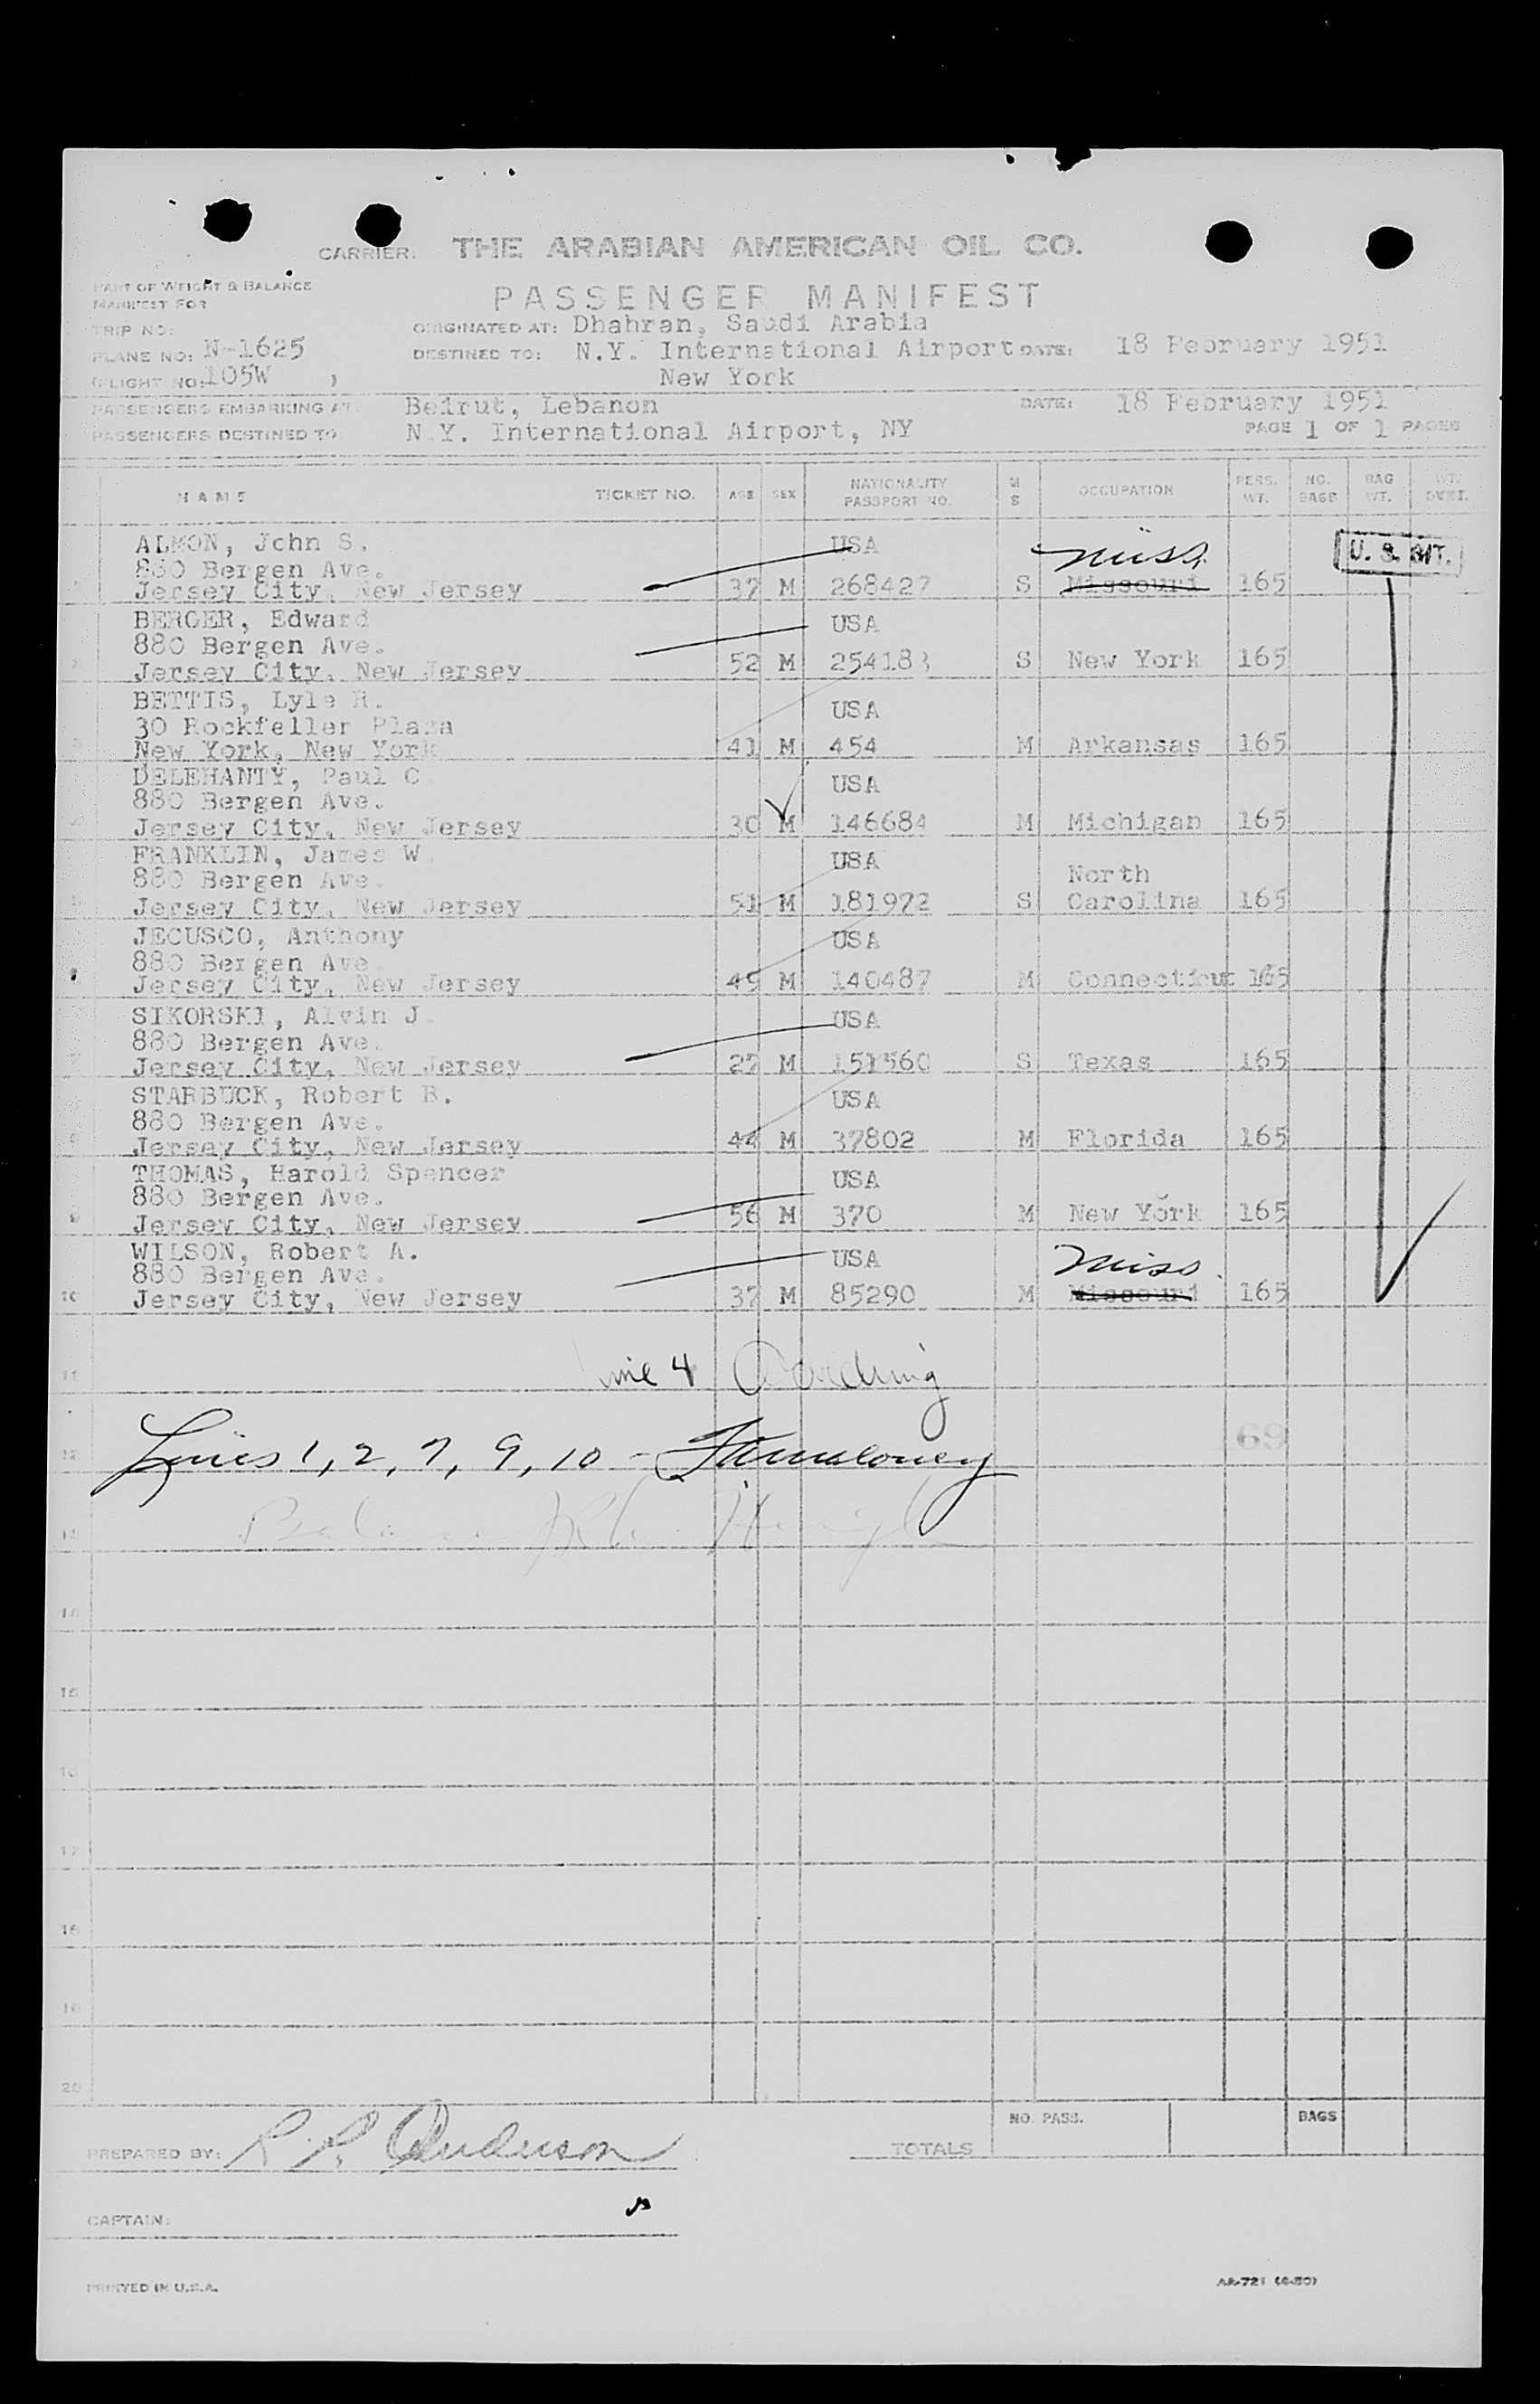 CARRIER: THE ARABIAN AMERICAN OIL CO.
PART OF WEIGHT & BALANCE
MANIFEST FOR
PASSENGER MANIFEST
TRIP NO:
ORIGINATED AT: Dhahran, Saudi Arabia
PLANE NO: N-1625
DESTINED TO: N.Y. International Airport DATE: 18 February 1951
FLIGHT NO: 105W
New York
PASSENGERS EMBARKING AT: Beirut, Lebanon DATE: 18 February 1951
PASSENGERS DESTINED TO: N.Y. International Airport, NY PAGE 1 OF 1 PAGES
NAME TICKET NO. AGE SEX NATIONALITY PASSPORT NO. M S OCCUPATION PERS. WT. NO. BAGS BAG WT. WT. OVWT.
ALMON, John S. USA Miss. U. S. CIT.
880 Bergen Ave.
Jersey City, New Jersey 37 M 268427 S Missouri 165
BERGER, Edward USA
880 Bergen Ave.
2 Jersey City, New Jersey 52 M 254183 S New York 165
BETTIS, Lyle R. USA
30 Rockfeller Plaza
3 New York, New York 41 M 454 M Arkansas 165
DELEHANTY, Paul C. USA
880 Bergen Ave.
4 Jersey City, New Jersey 30 M 146684 M Michigan 165
FRANKLIN, James W. USA
880 Bergen Ave. North
5 Jersey City, New Jersey 51 M 181972 S Carolina 165
JECUSCO, Anthony USA
880 Bergen Ave.
Jersey City, New Jersey 49 M 140487 M Connecticut 165
SIKORSKI, Alvin J. USA
880 Bergen Ave.
7 Jersey City, New Jersey 27 M 151560 S Texas 165
STARBUCK, Robert R. USA
880 Bergen Ave.
8 Jersey City, New Jersey 44 M 37802 M Florida 165
THOMAS, Harold Spencer USA
880 Bergen Ave.
9 Jersey City, New Jersey 56 M 370 M New York 165
WILSON, Robert A. USA Miss.
880 Bergen Ave.
10 Jersey City, New Jersey 37 M 85290 M Missouri 165
11 Line 4
12 Lines 1, 2, 7, 9, 10 - 69
13
14
15
16
17
18
19
20
NO. PASS. BAGS
PREPARED BY: R. P. Anderson TOTALS
CAPTAIN:
PRINTED IN U.S.A. AA-721 (6-50)